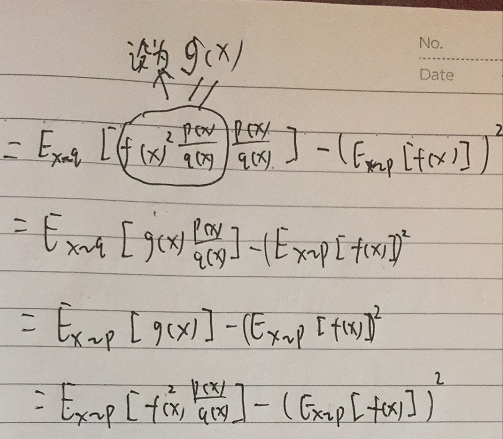 设为 g(x)
No.
Date
= E_{x~q} [f(x)² p(x)/q(x) p(x)/q(x)] - (E_{x~p} [f(x)])²
= E_{x~q} [g(x) p(x)/q(x)] - (E_{x~p} [f(x)])²
= E_{x~p} [g(x)] - (E_{x~p} [f(x)])²
= E_{x~p} [f²(x) p(x)/q(x)] - (E_{x~p} [f(x)])²